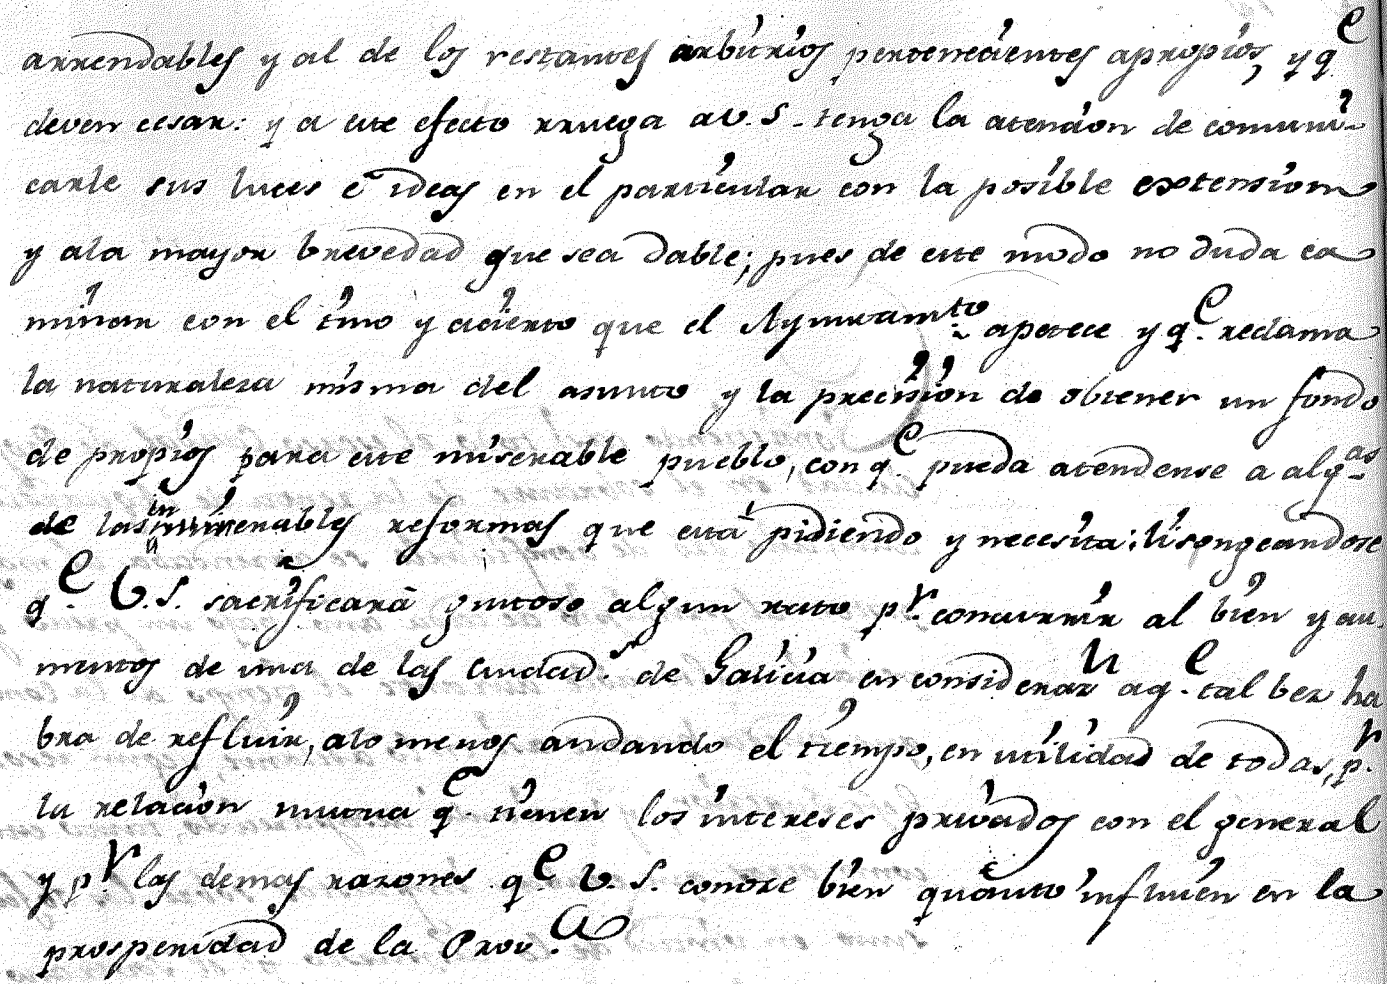 arrendables y al de los restantes arbitrios pertenecientes apropios, y q.e
deven cesar: y a este efecto rruega a V. S. tenga la atencion de comuni-
carle sus luces e ideas en el particular con la posible extension
y ala mayor brevedad que sea dable; pues de este modo no duda ca
minar con el tino y acierto que el Ayuntam.to apetece y q.e reclama
la naturaleza misma del asunto y la precision de obtener un fondo
de propios para este miserable pueblo, con q.e pueda atenderse a alg.as
de las innumerables reformas que está pidiendo y necesita; lisongeandose
q.e V. S. sacrificará gustoso algun rato p.r concurrir al bien y au-
mentos de una de las Ciudad.s de Galicia en consideraz.n a q.e tal bez ha
bra de refluir, alo menos andando el tiempo, en utilidad de todas, p.r
la relacion mutua q.e tienen los intereses privados con el general
y p.r las demas razones q.e V. S. conoze bien quánto influien en la
prosperidad de la Prov.a